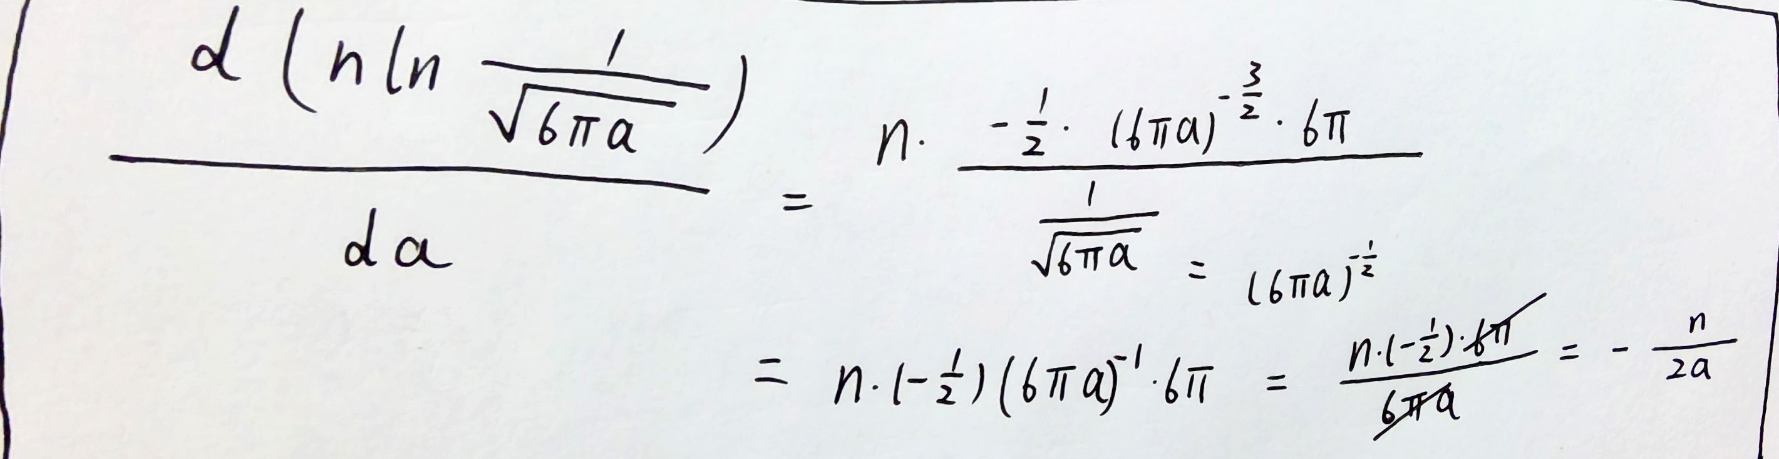 d(n ln 1/√(6πa)) / da = n · (-1/2 · (6πa)^(-3/2) · 6π) / (1/√(6πa))
= (6πa)^(-1/2)
= n·(-1/2)(6πa)^(-1)·6π = (n·(-1/2)·6π) / (6πa) = - n/(2a)